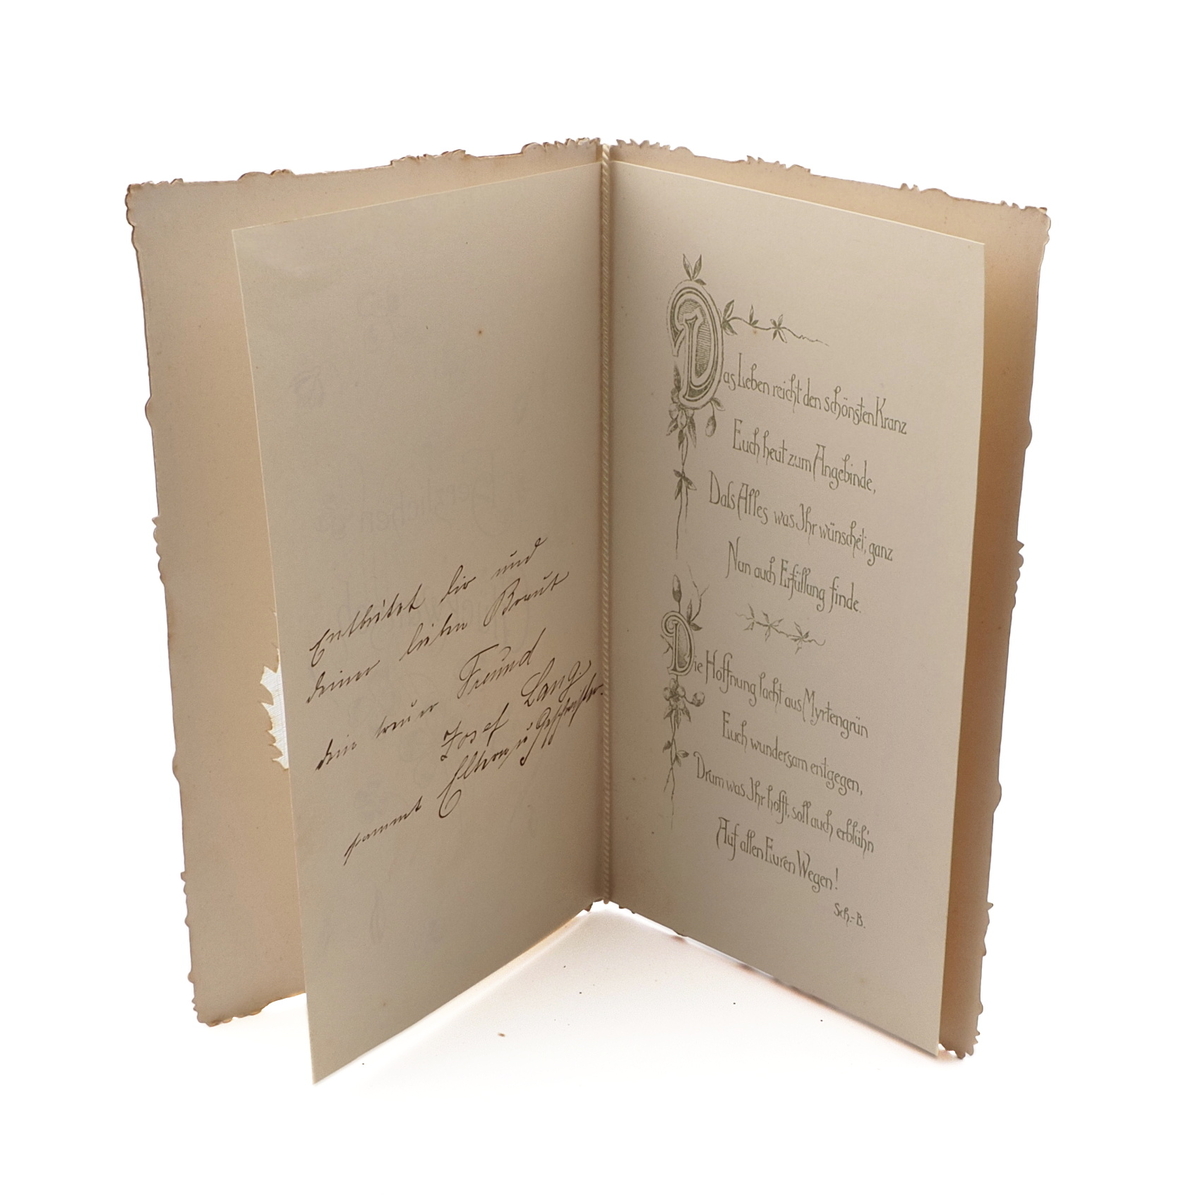 Entbietet dir und
deiner lieben Braut
dein treuer Freund
Josef Lang
sammt Eltern u. Geschwister.
Das Leben reicht den schönsten Kranz
Euch heut zum Angebinde,
Dass Alles was Ihr wünschet, ganz
Nun auch Erfüllung finde.
Die Hoffnung lacht aus Myrtengrün
Euch wundersam entgegen,
Drum was Ihr hofft, soll auch erblüh'n
Auf allen Euren Wegen!
Sch.-B.